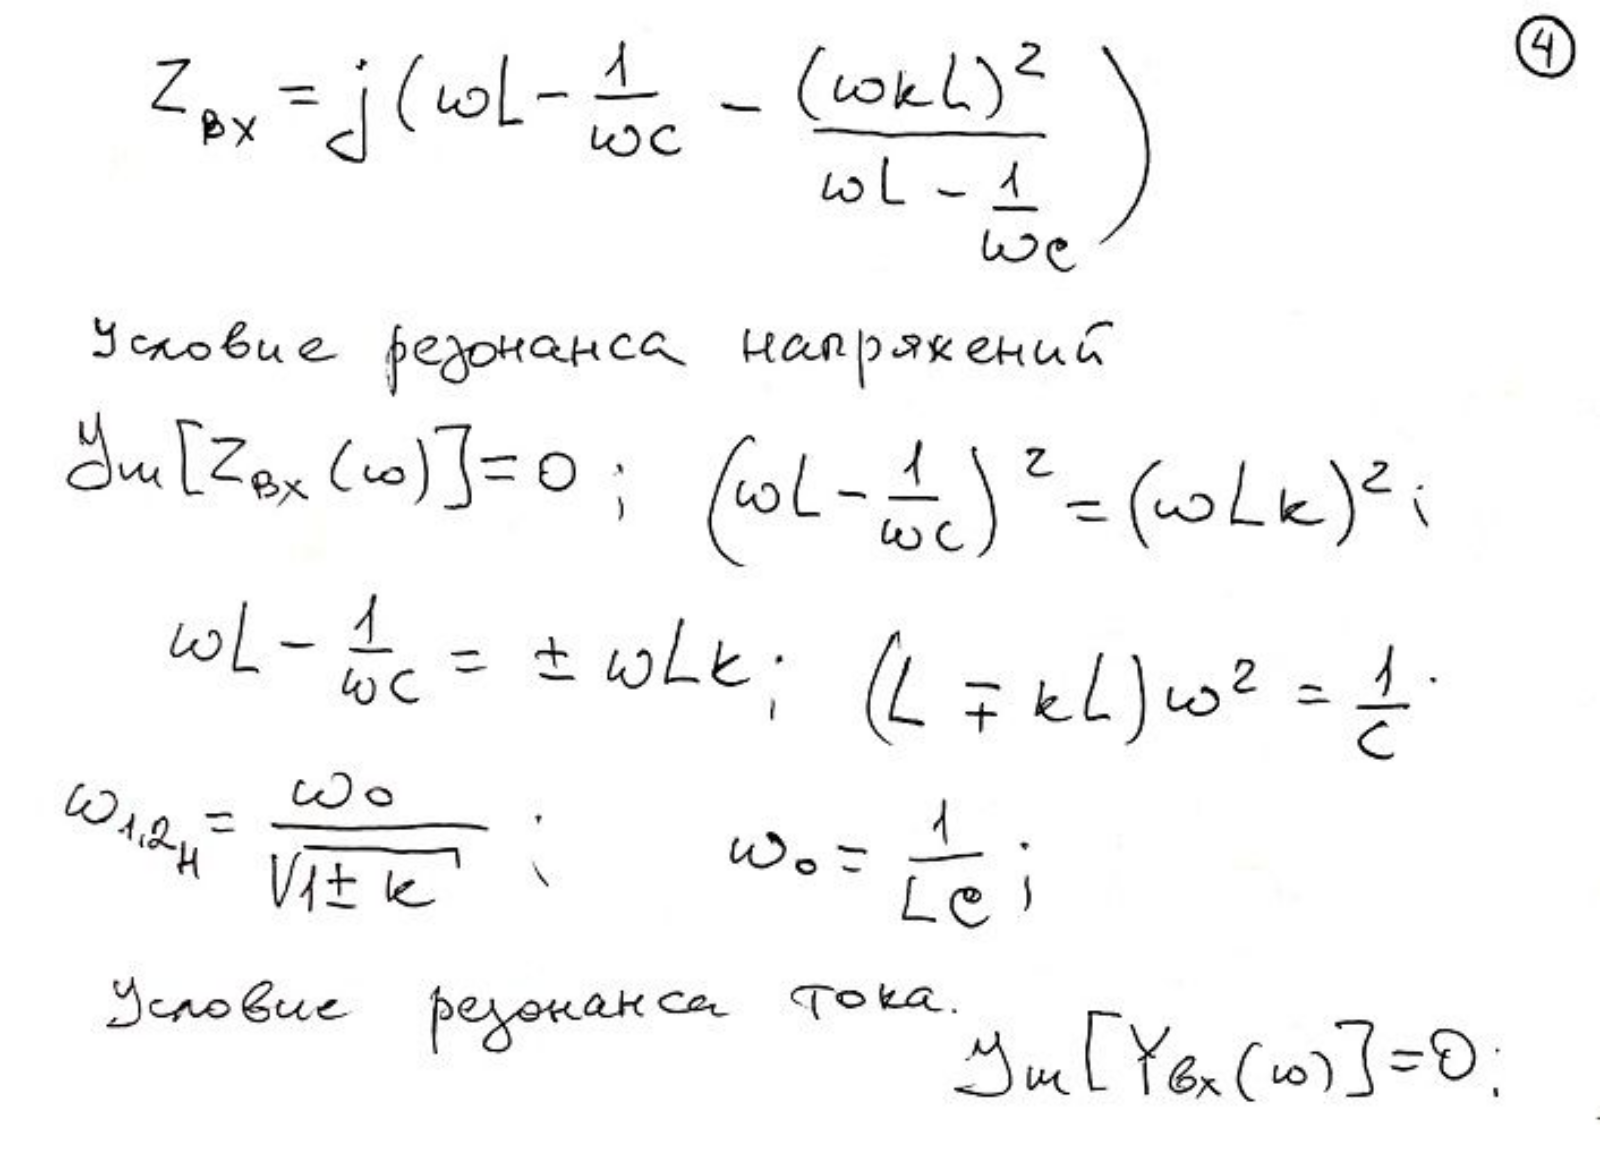 4
Zвх = j(ωL - 1/ωC - (ωkL)²/(ωL - 1/ωC))
Условие резонанса напряжений
Jm[Zвх(ω)]=0; (ωL - 1/ωC)² = (ωLk)²;
ωL - 1/ωC = ± ωLk; (L ∓ kL)ω² = 1/C.
ω1,2н = ω₀/√(1±k); ω₀ = 1/LC;
Условие резонанса тока.
Jm[Yвх(ω)]=0;